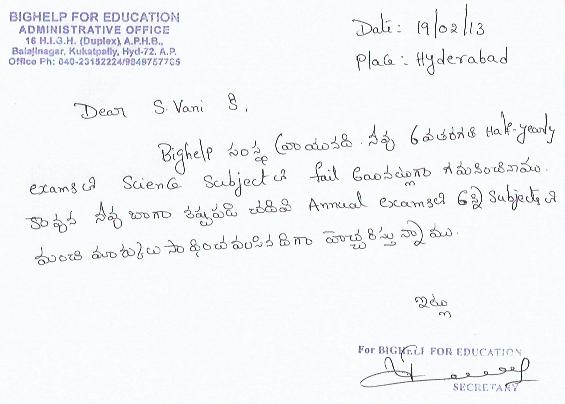 BIGHELP FOR EDUCATION
ADMINISTRATIVE OFFICE
16 H.I.G.H. (Duplex), A.P.H.B.,
Balajinagar, Kukatpally, Hyd-72. A.P.
Office Ph: 040-23152224/9849757765
Date: 19/02/13
Place: Hyderabad
Dear S. Vani కి,
Bighelp సంస్థ వ్రాయునది. నీవు 6వతరగతి Half-yearly
exams లో Science Subject లో fail అయినట్లుగా గమనించినాము.
కావున నీవు బాగా కష్టపడి చదివి Annual exams లో అన్ని Subjects లో
మంచి మార్కులు సాధించవలసినదిగా హెచ్చరిస్తున్నాము.
ఇట్లు
For BIGHELP FOR EDUCATION
SECRETARY